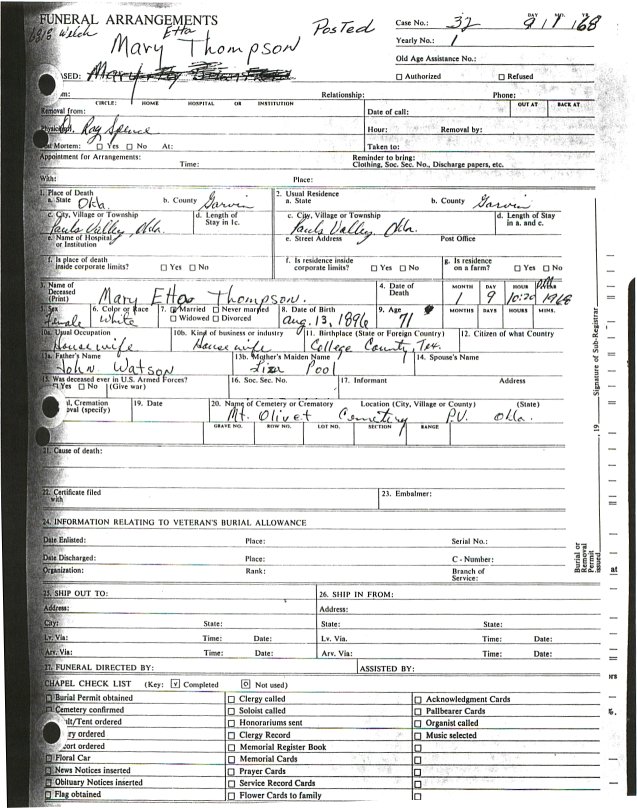 FUNERAL ARRANGEMENTS
Posted
Case No.: 32
Welch
Etta
Mary Thompson
Yearly No.: 1
Old Age Assistance No.:
SED: Mary
Authorized Refused
Relationship: Phone:
CIRCLE: HOME HOSPITAL OR INSTITUTION OUT AT BACK AT
Removal from: Date of call:
Dr. Ray Spence
Hour: Removal by:
Mortem: Yes No At: Taken to:
Appointment for Arrangements: Reminder to bring:
Time: Clothing, Soc. Sec. No., Discharge papers, etc.
With: Place:
1. Place of Death 2. Usual Residence
a. State Okla. b. County Garvin a. State b. County Garvin
c. City, Village or Township d. Length of Stay in 1c. c. City, Village or Township d. Length of Stay in a. and c.
Pauls Valley, Okla. Pauls Valley, Okla.
e. Name of Hospital or Institution e. Street Address Post Office
f. Is place of death inside corporate limits? Yes No f. Is residence inside corporate limits? Yes No g. Is residence on a farm? Yes No
3. Name of Deceased (Print) Mary Etta Thompson. 4. Date of Death MONTH DAY HOUR
1 9 10:20 1968
5. Sex 6. Color or Race 7. Married Never married Widowed Divorced 8. Date of Birth 9. Age MONTHS DAYS HOURS MINS.
Female White Aug. 13, 1896 71
10a. Usual Occupation 10b. Kind of business or industry 11. Birthplace (State or Foreign Country) 12. Citizen of what Country
Housewife Housewife College County, Tex.
13a. Father's Name 13b. Mother's Maiden Name 14. Spouse's Name
John Watson Liza Pool
15. Was deceased ever in U.S. Armed Forces? 16. Soc. Sec. No. 17. Informant Address
Yes No (Give war)
Cremation 19. Date 20. Name of Cemetery or Crematory Location (City, Village or County) (State)
oval (specify) Mt. Olivet Cemetery P.V. Okla.
GRAVE NO. ROW NO. LOT NO. SECTION RANGE
21. Cause of death:
22. Certificate filed with 23. Embalmer:
24. INFORMATION RELATING TO VETERAN'S BURIAL ALLOWANCE
Date Enlisted: Place: Serial No.:
Date Discharged: Place: C - Number:
Organization: Rank: Branch of Service:
25. SHIP OUT TO: 26. SHIP IN FROM:
Address: Address:
City: State: State: State:
Lv. Via: Time: Date: Lv. Via: Time: Date:
Arv. Via: Time: Date: Arv. Via: Time: Date:
27. FUNERAL DIRECTED BY: ASSISTED BY:
CHAPEL CHECK LIST (Key: v Completed O Not used)
Burial Permit obtained Clergy called Acknowledgment Cards
Cemetery confirmed Soloist called Pallbearer Cards
ult/Tent ordered Honorariums sent Organist called
ry ordered Clergy Record Music selected
ort ordered Memorial Register Book
Floral Car Memorial Cards
News Notices inserted Prayer Cards
Obituary Notices inserted Service Record Cards
Flag obtained Flower Cards to family
Signature of Sub-Registrar
19
Burial or Removal Permit issued
at